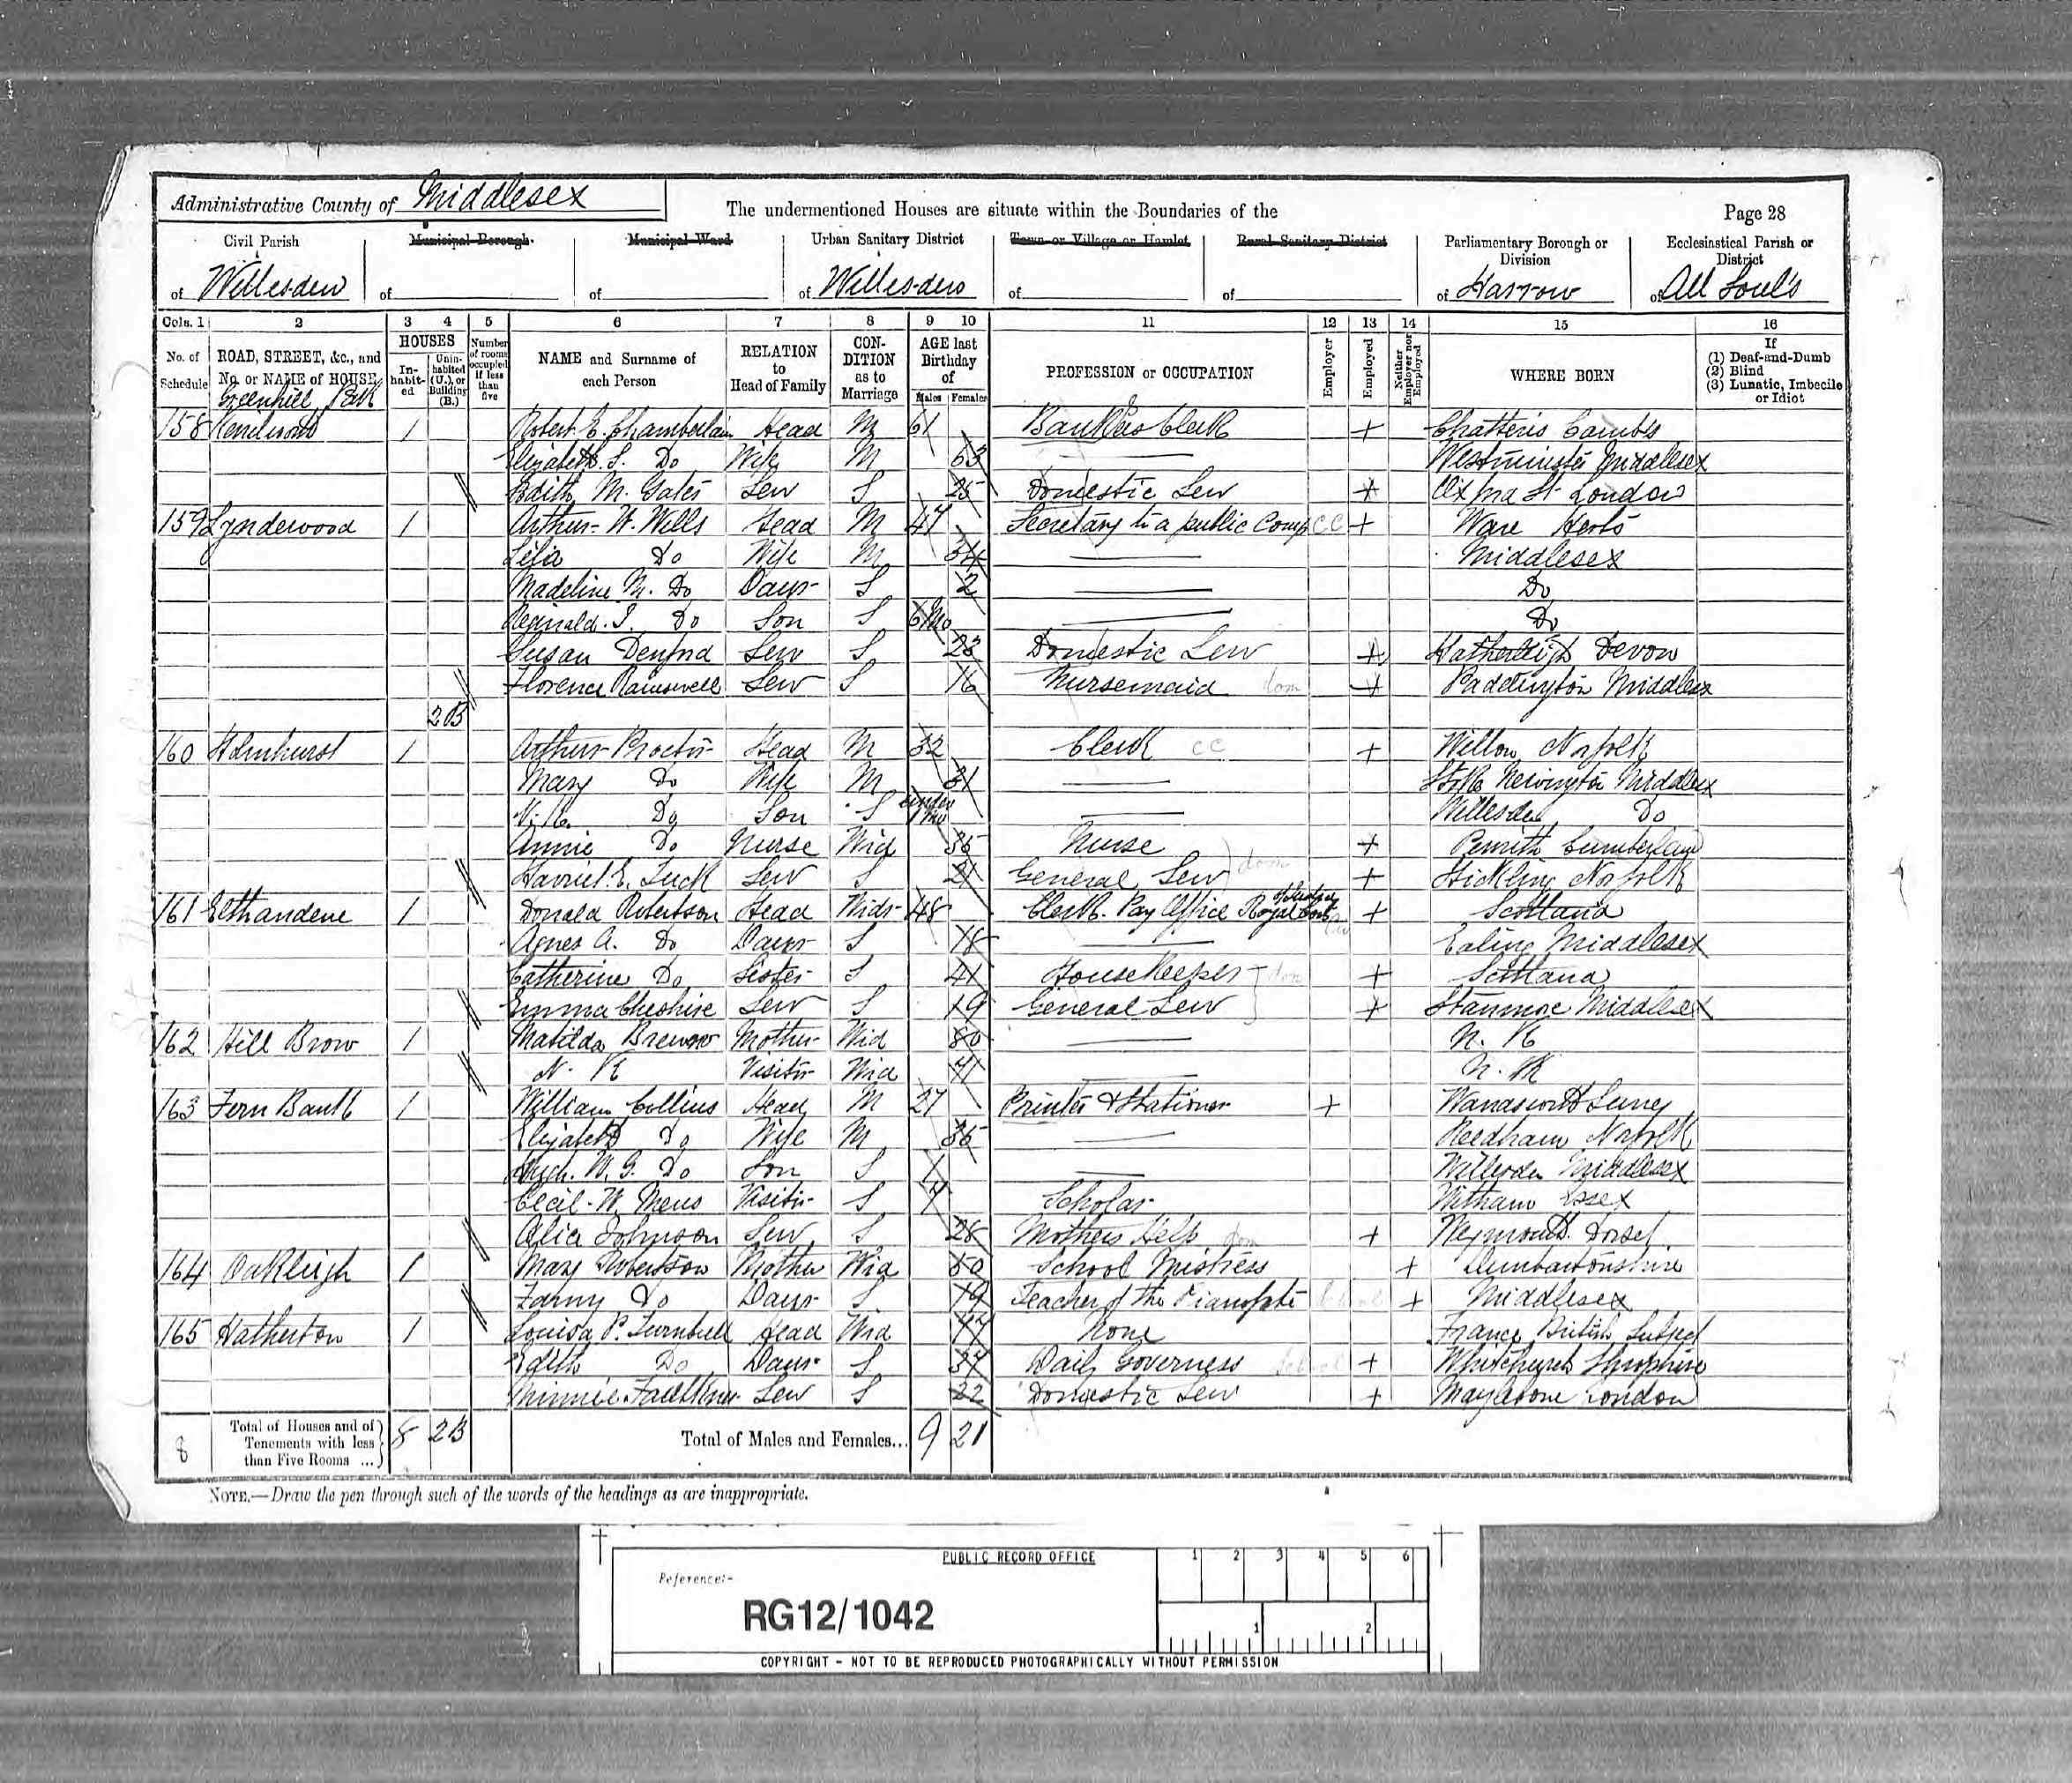 Administrative County of Middlesex
The undermentioned Houses are situate within the Boundaries of the
Page 28
Civil Parish of Willesden
Municipal Borough of
Municipal Ward of
Urban Sanitary District of Willesden
Town or Village or Hamlet of
Rural Sanitary District of
Parliamentary Borough or Division of Harrow
Ecclesiastical Parish or District of All Soul's
Cols. 1 2 3 4 5 6 7 8 9 10 11 12 13 14 15 16
No. of Schedule
ROAD, STREET, &c., and No. or NAME of HOUSE
HOUSES
Inhabited
Uninhabited (U.), or Building (B.)
Number of rooms occupied if less than five
NAME and Surname of each Person
RELATION to Head of Family
CONDITION as to Marriage
AGE last Birthday of
Males Females
PROFESSION or OCCUPATION
Employer
Employed
Neither Employer nor Employed
WHERE BORN
If (1) Deaf-and-Dumb (2) Blind (3) Lunatic, Imbecile or Idiot
Greenhill Park
158 Kenilworth 1 Robert E. Chamberlain Head M 61 Bankers Clerk + Chatteris Cambs
Elizabeth S. Do Wife M 63 Westminster Middlesex
Edith M. Gates Serv S 25 Domestic Serv + London
159 Lynderwood 1 Arthur W. Wills Head M 47 Secretary to a public Comp CC + Ware Herts
Do Wife M 34 Middlesex
Madeline M. Do Daur S 2 Do
Reginald Do Son S 6 Mo Do
Susan Denford Serv S 23 Domestic Serv + Hatherleigh Devon
Florence Serv S 16 Nursemaid dom + Paddington Middlesex
2B
160 Holmhurst 1 Arthur Proctor Head M 32 Clerk CC + Norfolk
Mary Do Wife M 31 Stoke Newington Middlesex
N. K. Do Son S under 1 Mo Willesden Do
Annie Do Nurse Wid 35 Nurse + Penrith Cumberland
Harriet E. Tuck Serv S 21 General Serv dom + Hickling Norfolk
161 1 Donald Robertson Head Widr 48 Clerk Pay Office Royal Courts of Justice + Scotland
Agnes A. Do Daur S 18 Ealing Middlesex
Catherine Do Sister S 41 Housekeeper dom + Scotland
Emma Cheshire Serv S 19 General Serv + Stanmore Middlesex
162 Hill Brow 1 Matilda Mother Wid 80 N. K
N. K Visitor Wid 71 N. K
163 Fern Bank 1 William Collins Head M 27 Printer & Stationer + Wandsworth Surrey
Elizabeth Do Wife M 35 Reedham Norfolk
Hugh W. G. Do Son S 1 Willesden Middlesex
Cecil W. Visitor S 7 Scholar Witham Essex
Alice Johnson Serv S 28 Mothers Help dom + Weymouth Dorset
164 Oakleigh 1 Mary Robertson Mother Wid 50 School Mistress + Dumbartonshire
Fanny Do Daur S 19 Teacher of the Pianoforte + Middlesex
165 Hatherton 1 Louisa P. Turnbull Head Wid None France British Subject
Edith Do Daur S 37 Daily Governess School + Whitchurch Shropshire
Minnie Faulkner Serv S 22 Domestic Serv + Marylebone London
8 Total of Houses and of Tenements with less than Five Rooms ... 8 2B Total of Males and Females... 9 21
NOTE.—Draw the pen through such of the words of the headings as are inappropriate.
PUBLIC RECORD OFFICE
1 2 3 4 5 6
Reference:-
RG12/1042
1 2
COPYRIGHT - NOT TO BE REPRODUCED PHOTOGRAPHICALLY WITHOUT PERMISSION